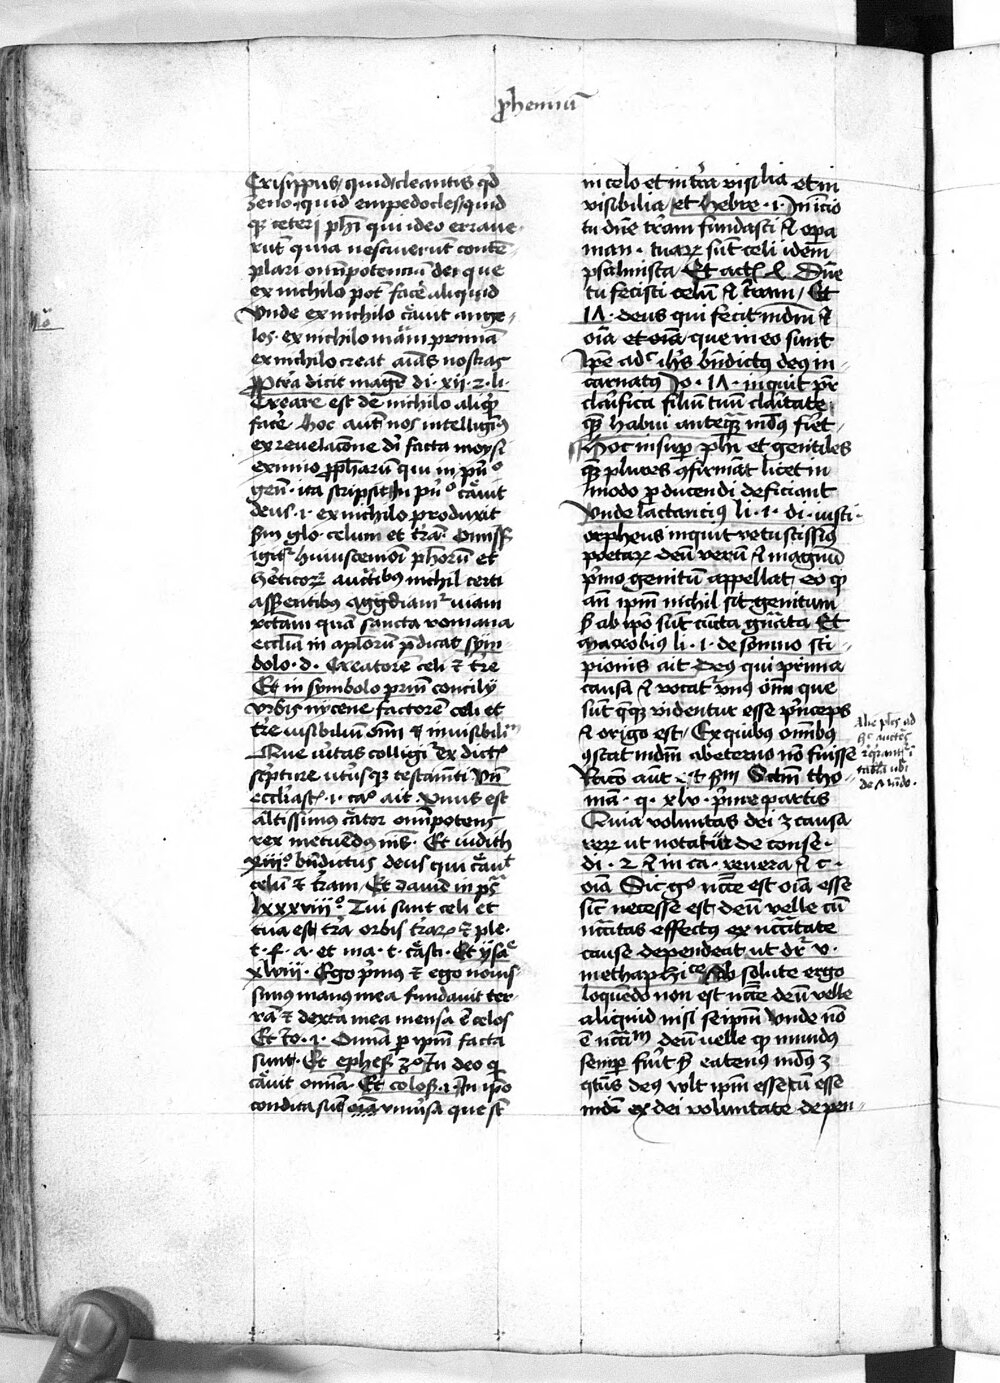 ꝓhemiū
Crisippus quid cleantis qd
zeno quid empedocles quid
qʒ ceteri phi qui ideo erraue
rūt quia nesciuerūt conte
plari omnipotenciā dei que
ex nichilo pōt facē aliquid
Unde ex nichilo cāuit ange
los · ex nichilo māiam primā
ex nichilo creat aīas nostras
ꝓptea dicit mage di · xii · 2 · li ·
Creare est de nichilo aliqd
facē · Hoc autē nos intelligim9
ex reuelacōne di facta moysi
eximio ꝓpharū qui in pn°
gen · ita scripsit In pn° cāuit
deus · i · ex nichilo produxit
sm glo · celum et trā · Omiss
igit huiuscemodi phorū et
heticoꝝ auctibus nichil certi
asserentibus aggrediam uiam
rctam quā sancta romana
ecclia in aplorū pdicat sym
dolo · d · Creatorē celi ⁊ tre
Et in symbolo primi concilij
urbis nycene factorē celi et
tre uisibiliū omi ⁊ inuisibiliū
Que uitas colligi ex dict
scpture utusqʒ testamti Un
ecclasti · i · ca° ait · Unus est
altissimus cātor omnipotens
rex metuend9 nis · Et iudith
xiii° bndictus deus qui cāuit
celū ⁊ tram Et dauid in ps
lxxxviii° · Tui sunt celi et
tua est tra orbis traꝝ ⁊ ple ·
t · f · a · et ma · t · cāsti · Et ysa
xlviii · Ego pm9 ⁊ ego nouis
sim9 man9 mea fundauit ter
ram ⁊ dextā mea mensa ē celos
Et io · i · Omia p ipm facta
sunt · Et ephes 3° In deo q
cāuit omia · Et colos · i · In ipo
condita sūt oīa uniusa que st
in celo et in tra uisilia et in
uisibilia et hebre · i · In inicio
tu dne tram fundasti ⁊ opa
man · tuaꝝ sūt celi idem
psalmista Et act · Dne
tu fecisti celū ⁊ tram Et
17 · deus qui fecit mdm ⁊
oīa que in eo sunt
Ipe ad ihs bndict9 de9 in
carnat9 Jo · 17 · inquit pr
clarifica filiū tuū claitate
quā habui anteqʒ md9 fiet
Hoc insup phi et gentiles
qʒ plures gfirmāt licet in
modo pducendi deficiant
Unde lactanci9 li · i · di · insti
orpheus inquit uetustissi9
poetaꝝ deū uerū ⁊ magnū
pmo genitū appellat eo qd
an ipm nichil sit genitum
s ab ipo sūt cūcta gnata Et
Macrobi9 li · i · de somno sci
pionis ait De9 qui prima
causa ⁊ uocat un9 oīm que
sūt qʒ uidentur esse pnceps
⁊ origo est Ex quibus omibus
gstat mdm abeterno nō fuisse
Raco aut est sm Sctm tho
mā · q · xlv · pme partis
Quia uoluntas dei 3 causa
reꝝ ut notatur de conse ·
di · 2 ⁊ in ca · reuera ⁊ c ·
oīa Sic g° ncce est oīa esse
sic necesse est deū uelle cū
nccitas effectus ex nccitate
cause dependeat ut dr v ·
methaphice Absolute ergo
loquēdo non est ncce deū uelle
aliquid nisi seipm Unde nō
ē nccim deū uelle qd mundus
semp fuit s eaten9 md9 3
qten9 de9 uult ipm esse cū esse
mdi ex dei uoluntate depen